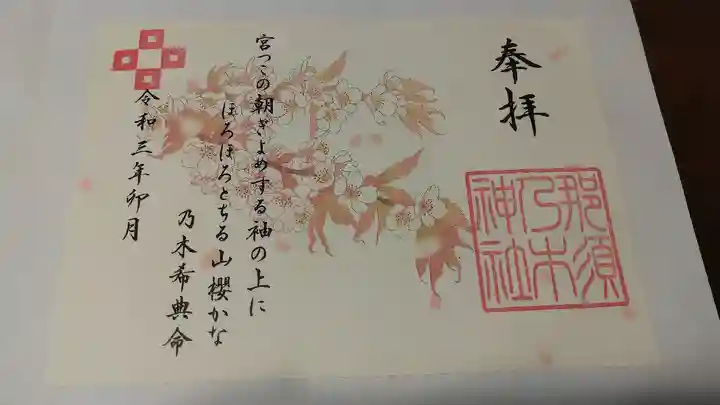 奉拝
那須
乃木
神社
宮つこの朝きよめする袖の上に
ほろほろとちる山櫻かな
乃木希典命
令和三年卯月